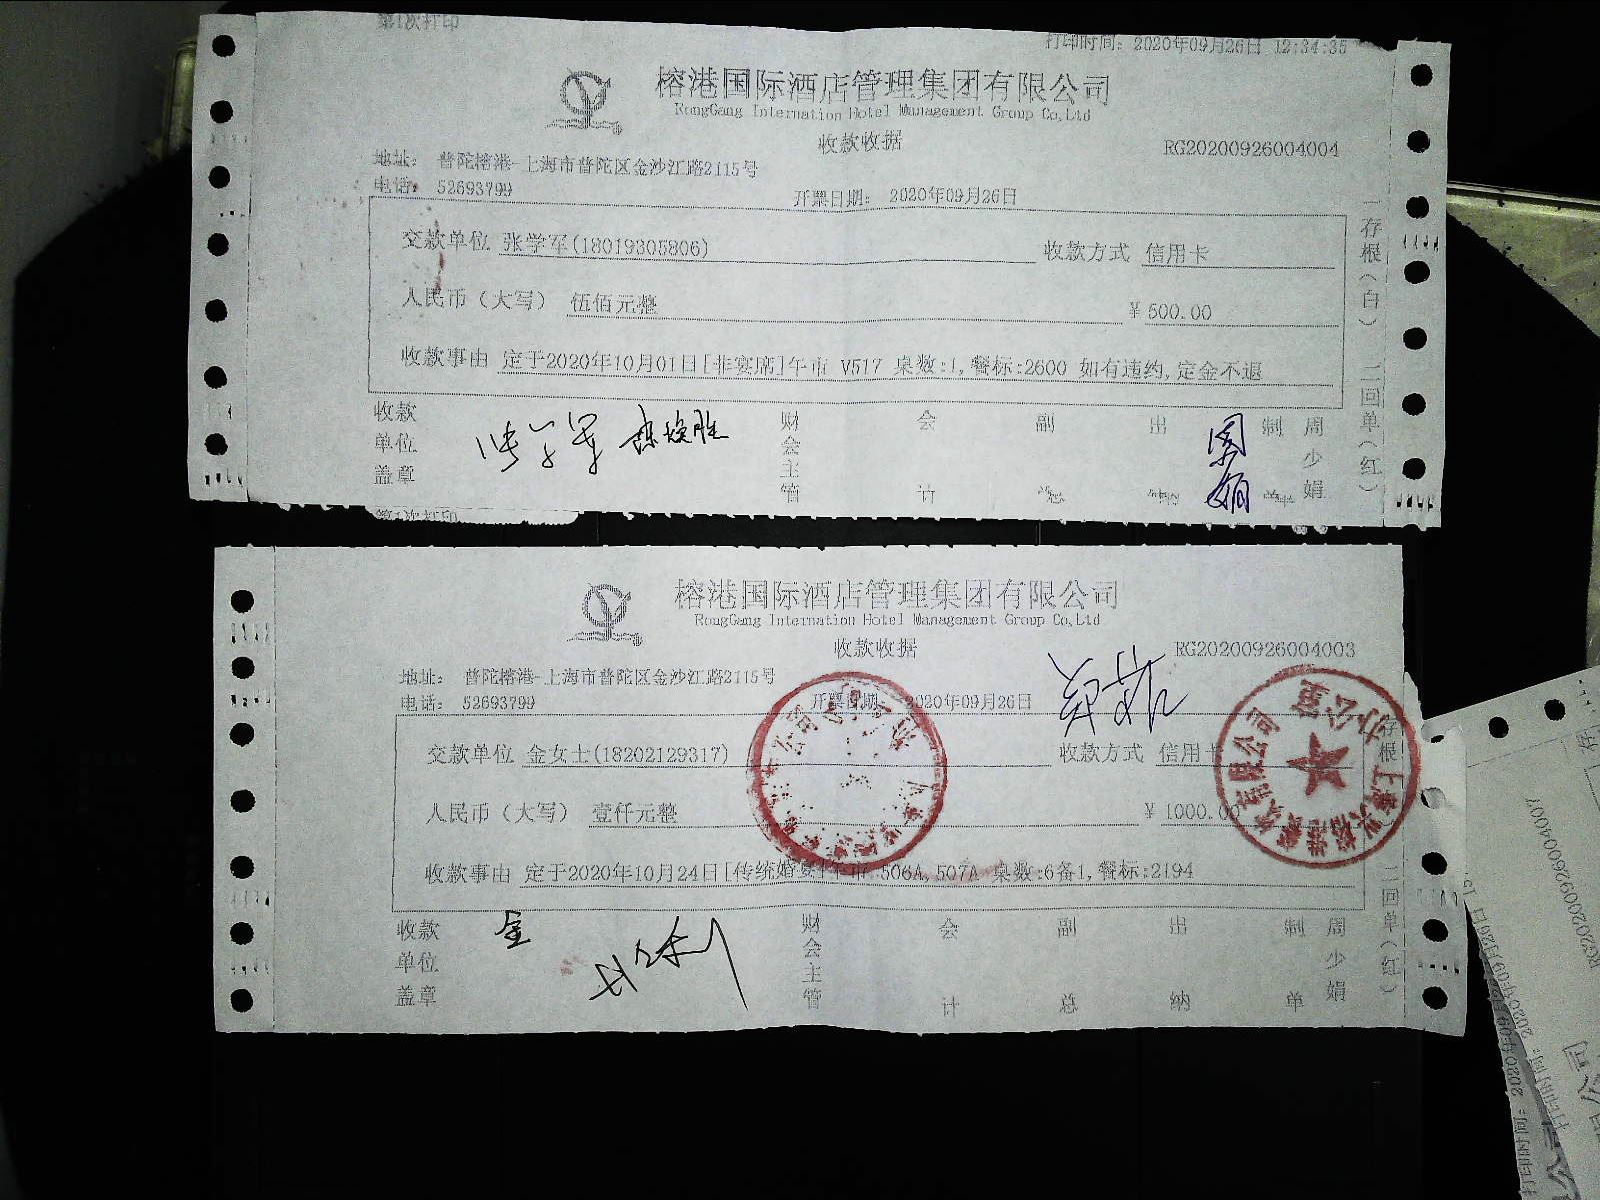 第1次打印
打印时间：2020年09月26日 12:34:35
榕港国际酒店管理集团有限公司
RongGang Internation Hotel Management Group Co,Ltd
收款收据
RG20200926004004
地址： 普陀榕港-上海市普陀区金沙江路2115号
电话： 52693799
开票日期： 2020年09月26日
交款单位 张学军(18019305806)
收款方式 信用卡
人民币（大写） 伍佰元整
￥500.00
收款事由 定于2020年10月01日[非宴席]午市 V517 桌数:1,餐标:2600 如有违约,定金不退
一存根（白） 二回单（红）
收款单位盖章
张学军
财会主管
会计
副总
出纳
制单
周少娟
周娟
第1次打印
榕港国际酒店管理集团有限公司
RongGang Internation Hotel Management Group Co,Ltd
收款收据
RG20200926004003
地址： 普陀榕港-上海市普陀区金沙江路2115号
电话： 52693799
开票日期： 2020年09月26日
交款单位 金女士(18202129317)
收款方式 信用卡
人民币（大写） 壹仟元整
￥1000.00
收款事由 定于2020年10月24日[传统婚宴]午市 506A,507A 桌数:6备1,餐标:2194
存根 二回单（红）
办公室
收款单位盖章
金
财会主管
会计
副总
出纳
制单
周少娟
RG20200926004007